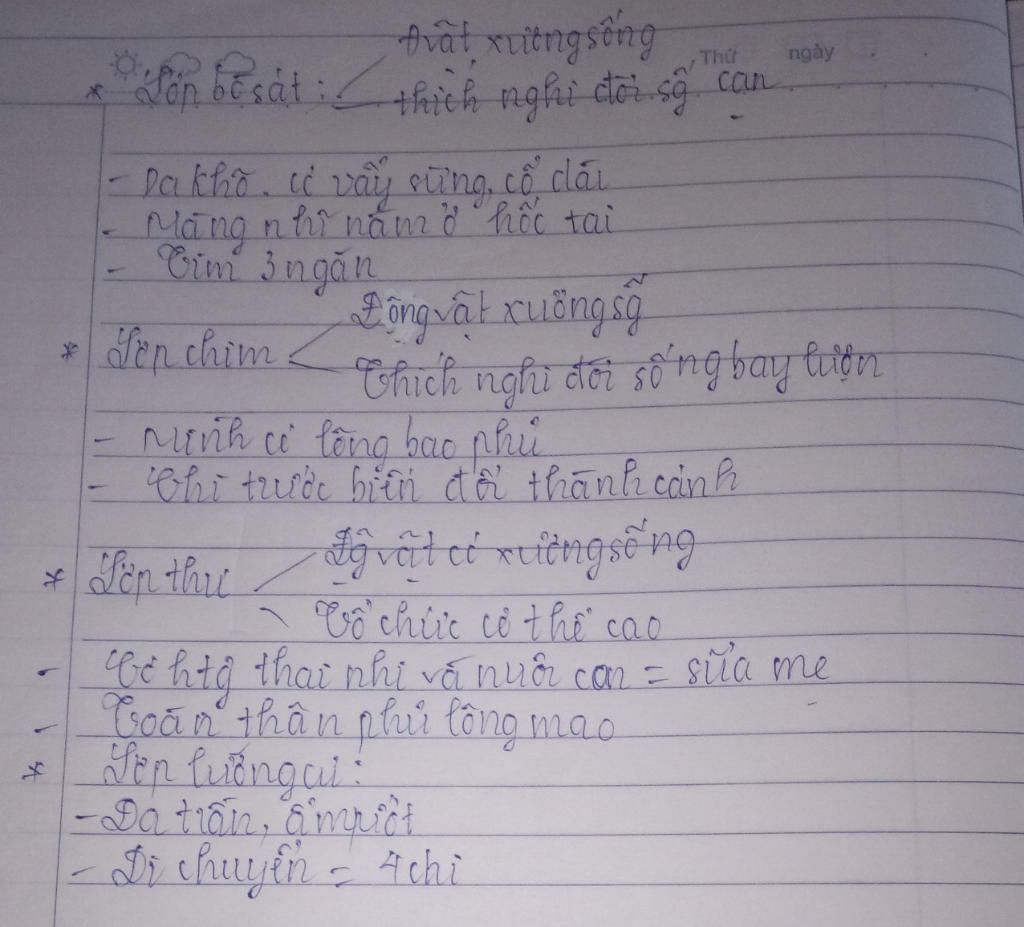 Đvật xương sống
Thứ ngày
* Lớp bò sát: thích nghi đời sg̃ cạn
- Da khô. có vẩy sừng, cổ dài
- Màng nhĩ nằm ở hốc tai
- Tim 3 ngăn
Động vật xương sg̃
* Lớp chim
Thích nghi đời sống bay lượn
- Mình có lông bao phủ
- Chi trước biến đổi thành cánh
Đg̃ vật có xương sống
* Lớp thú
Tổ chức cơ thể cao
- Có htg̃ thai nhi và nuôi con = sữa mẹ
- Toàn thân phủ lông mao
* Lớp lưỡng cư:
- Da trần, ẩm ướt
- Di chuyển = 4 chi